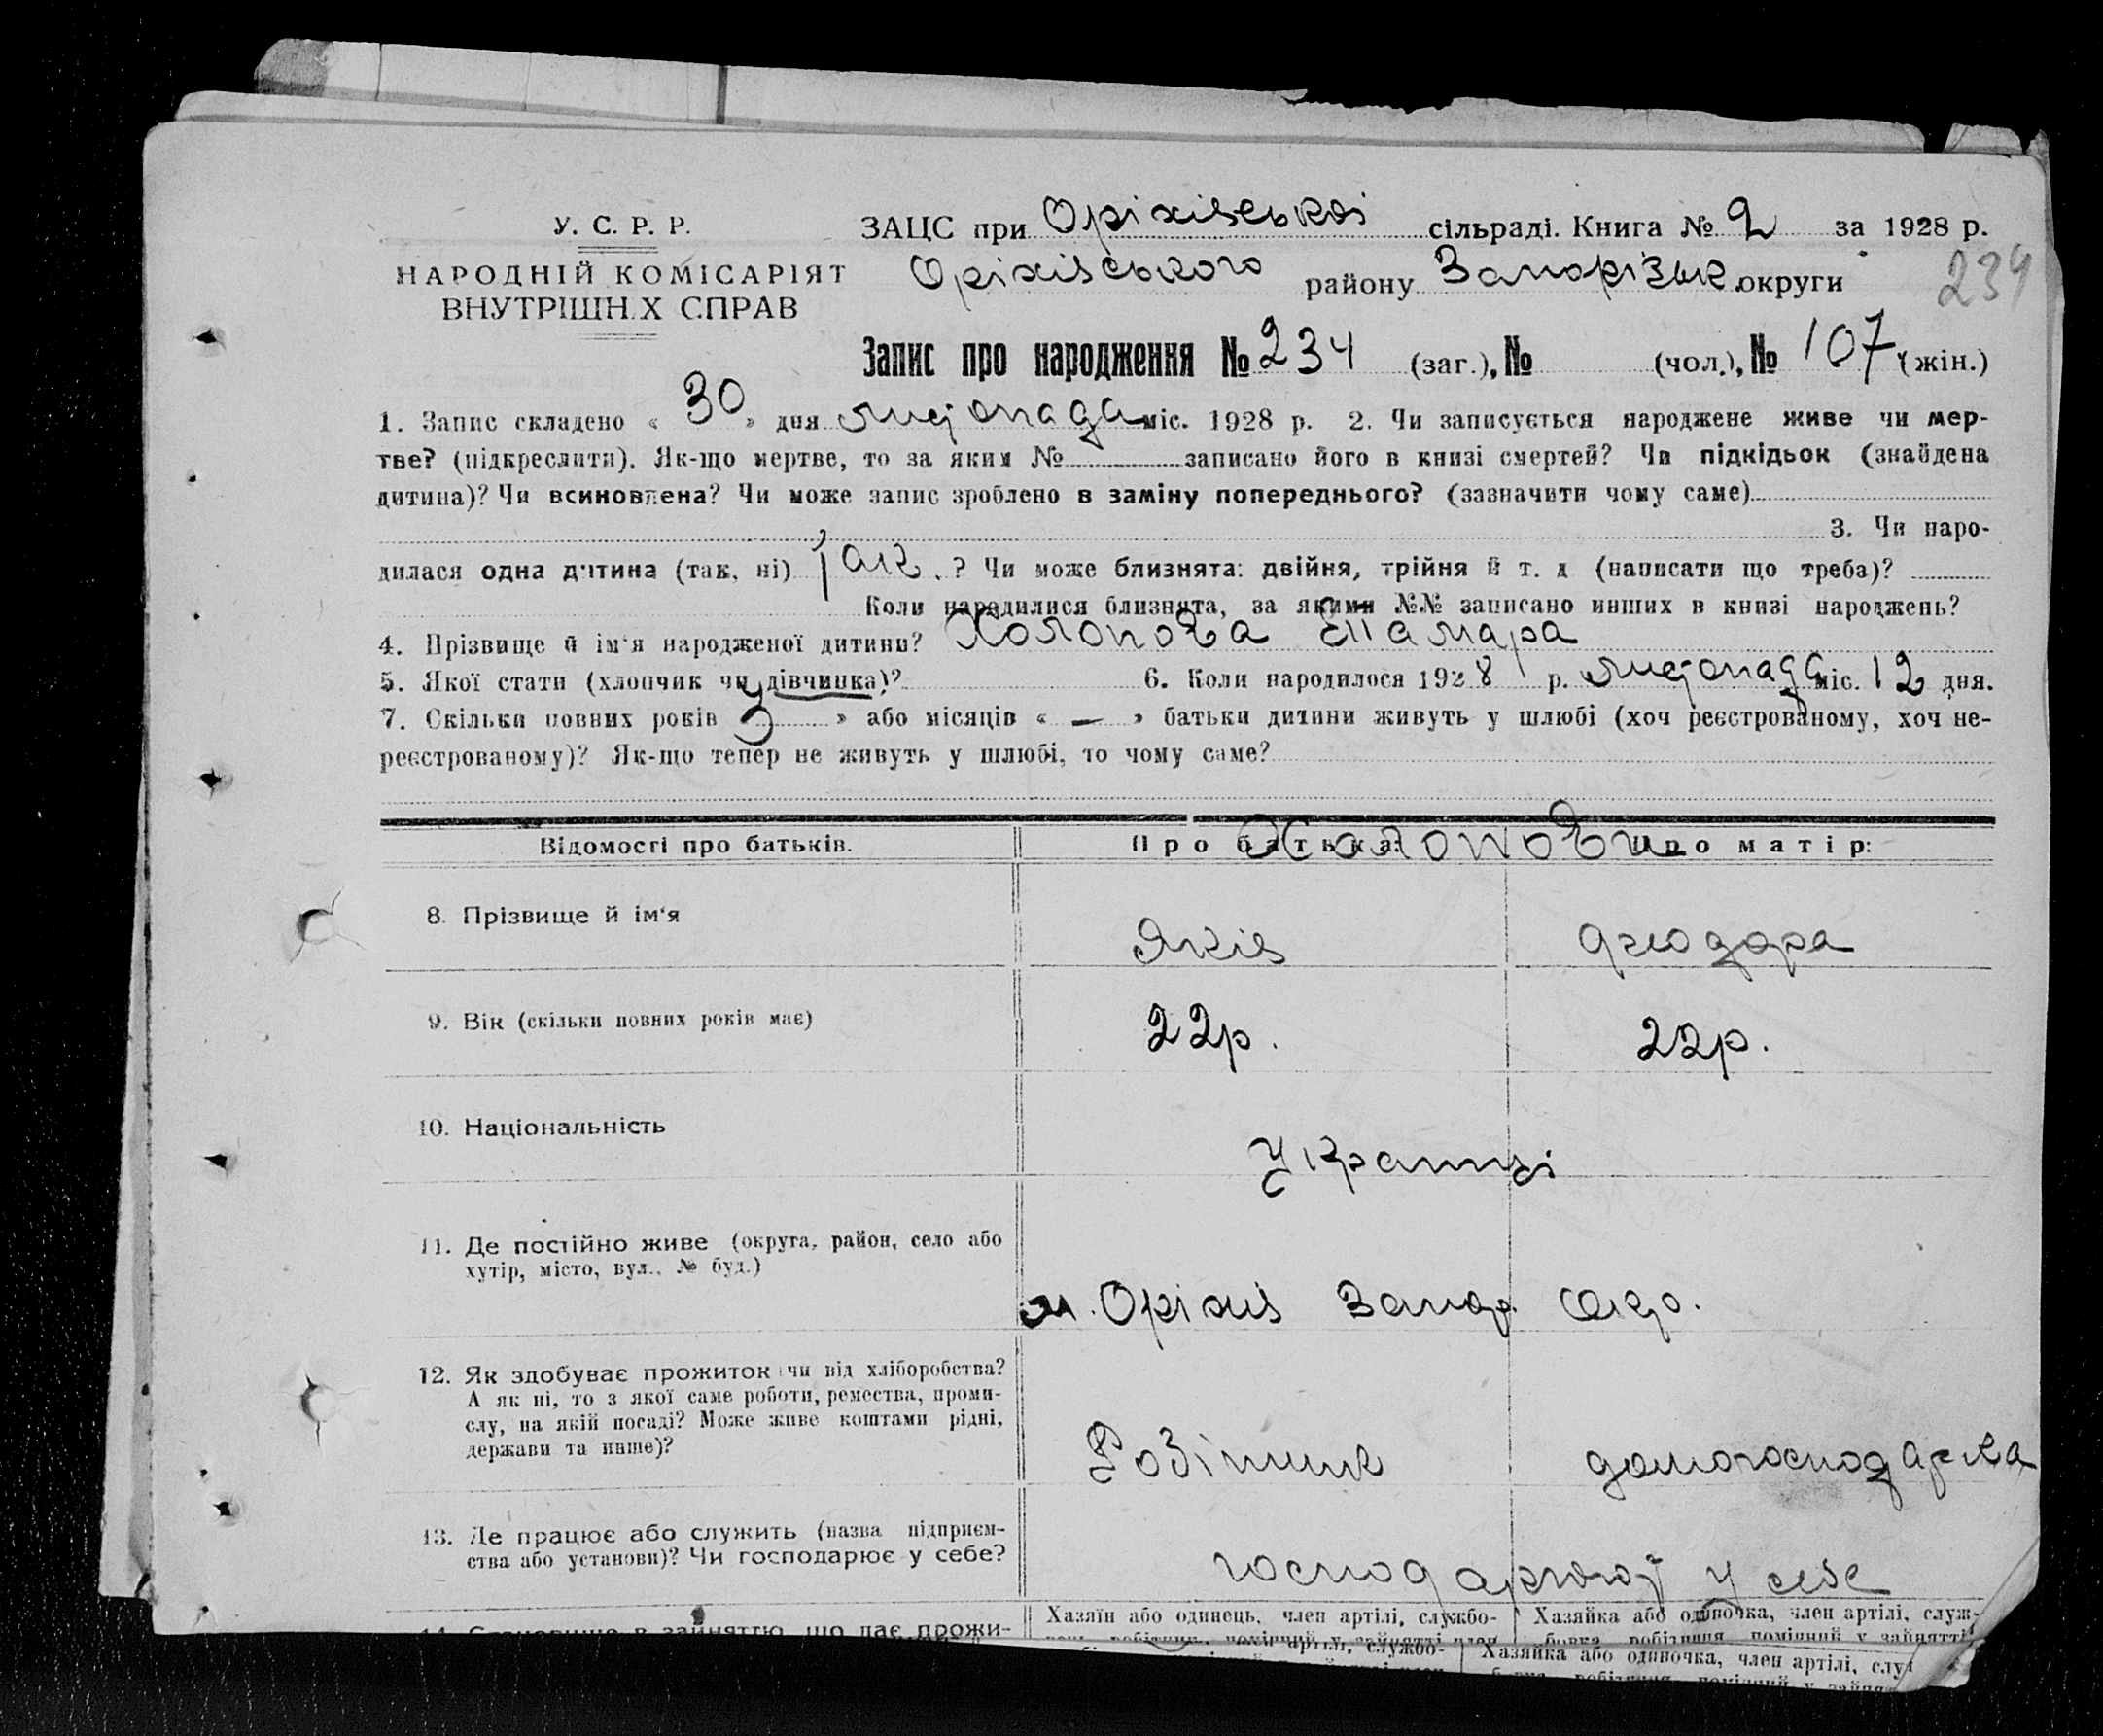 У. С. Р. Р.
НАРОДНІЙ КОМІСАРІЯТ
ВНУТРІШН.Х СПРАВ
ЗАЦС при Оріхівської сільраді. Книга № 2 за 1928 р.
Оріхівського району Запорізьк. округи
234
Запис про народження № 234 (заг.), № (чол.), № 107 (жін.)
1. Запис складено « 30 » дня листопада міс. 1928 р. 2. Чи записується народжене живе чи мер-
тве? (підкреслити). Як-що мертве, то за яким № записано його в книзі смертей? Чи підкідьок (знайдена
дитина)? Чи всиновлена? Чи може запис зроблено в заміну попереднього? (зазначити чому саме)
3. Чи наро-
дилася одна дитина (так, ні) так. ? Чи може близнята: двійня, трійня й т. д (написати що треба)?
Коли народилися близнята, за якими №№ записано инших в книзі народжень?
4. Прізвище й ім‘я народженої дитини? Холопова Тамара
5. Якої стати (хлопчик чи дівчинка)? 6. Коли народилося 1928 р. листопада міс. 12 дня.
7. Скільки повних років 3 » або місяців « — » батьки дитини живуть у шлюбі (хоч реєстрованому, хоч не-
реєстрованому)? Як-що тепер не живуть у шлюбі, то чому саме?
Відомості про батьків. Про батька: Про матір:
Холопови
8. Прізвище й ім‘я Яків
9. Вік (скільки повних років має) 22р. 22р.
10. Національність Українці
11. Де постійно живе (округа, район, село або
хутір, місто, вул., № буд.)
м. Оріхів Запор. окр.
12. Як здобуває прожиток чи від хліборобства?
А як ні, то з якої саме роботи, ремества, проми-
слу, на якій посаді? Може живе коштами рідні,
держави та инше)?
Робітник домогосподарка
13. Де працює або служить (назва підприєм-
ства або установи)? Чи господарює у себе?
господарюют у себе
Хазяїн або одинець, член артілі, службо- Хазяйка або одиночка, член артілі, служ-
14. Становище в зайняттю, що дає прожи-
бовка, робітниця, помічний у зайнятті
Хазяйка або одиночка, член артілі, слу